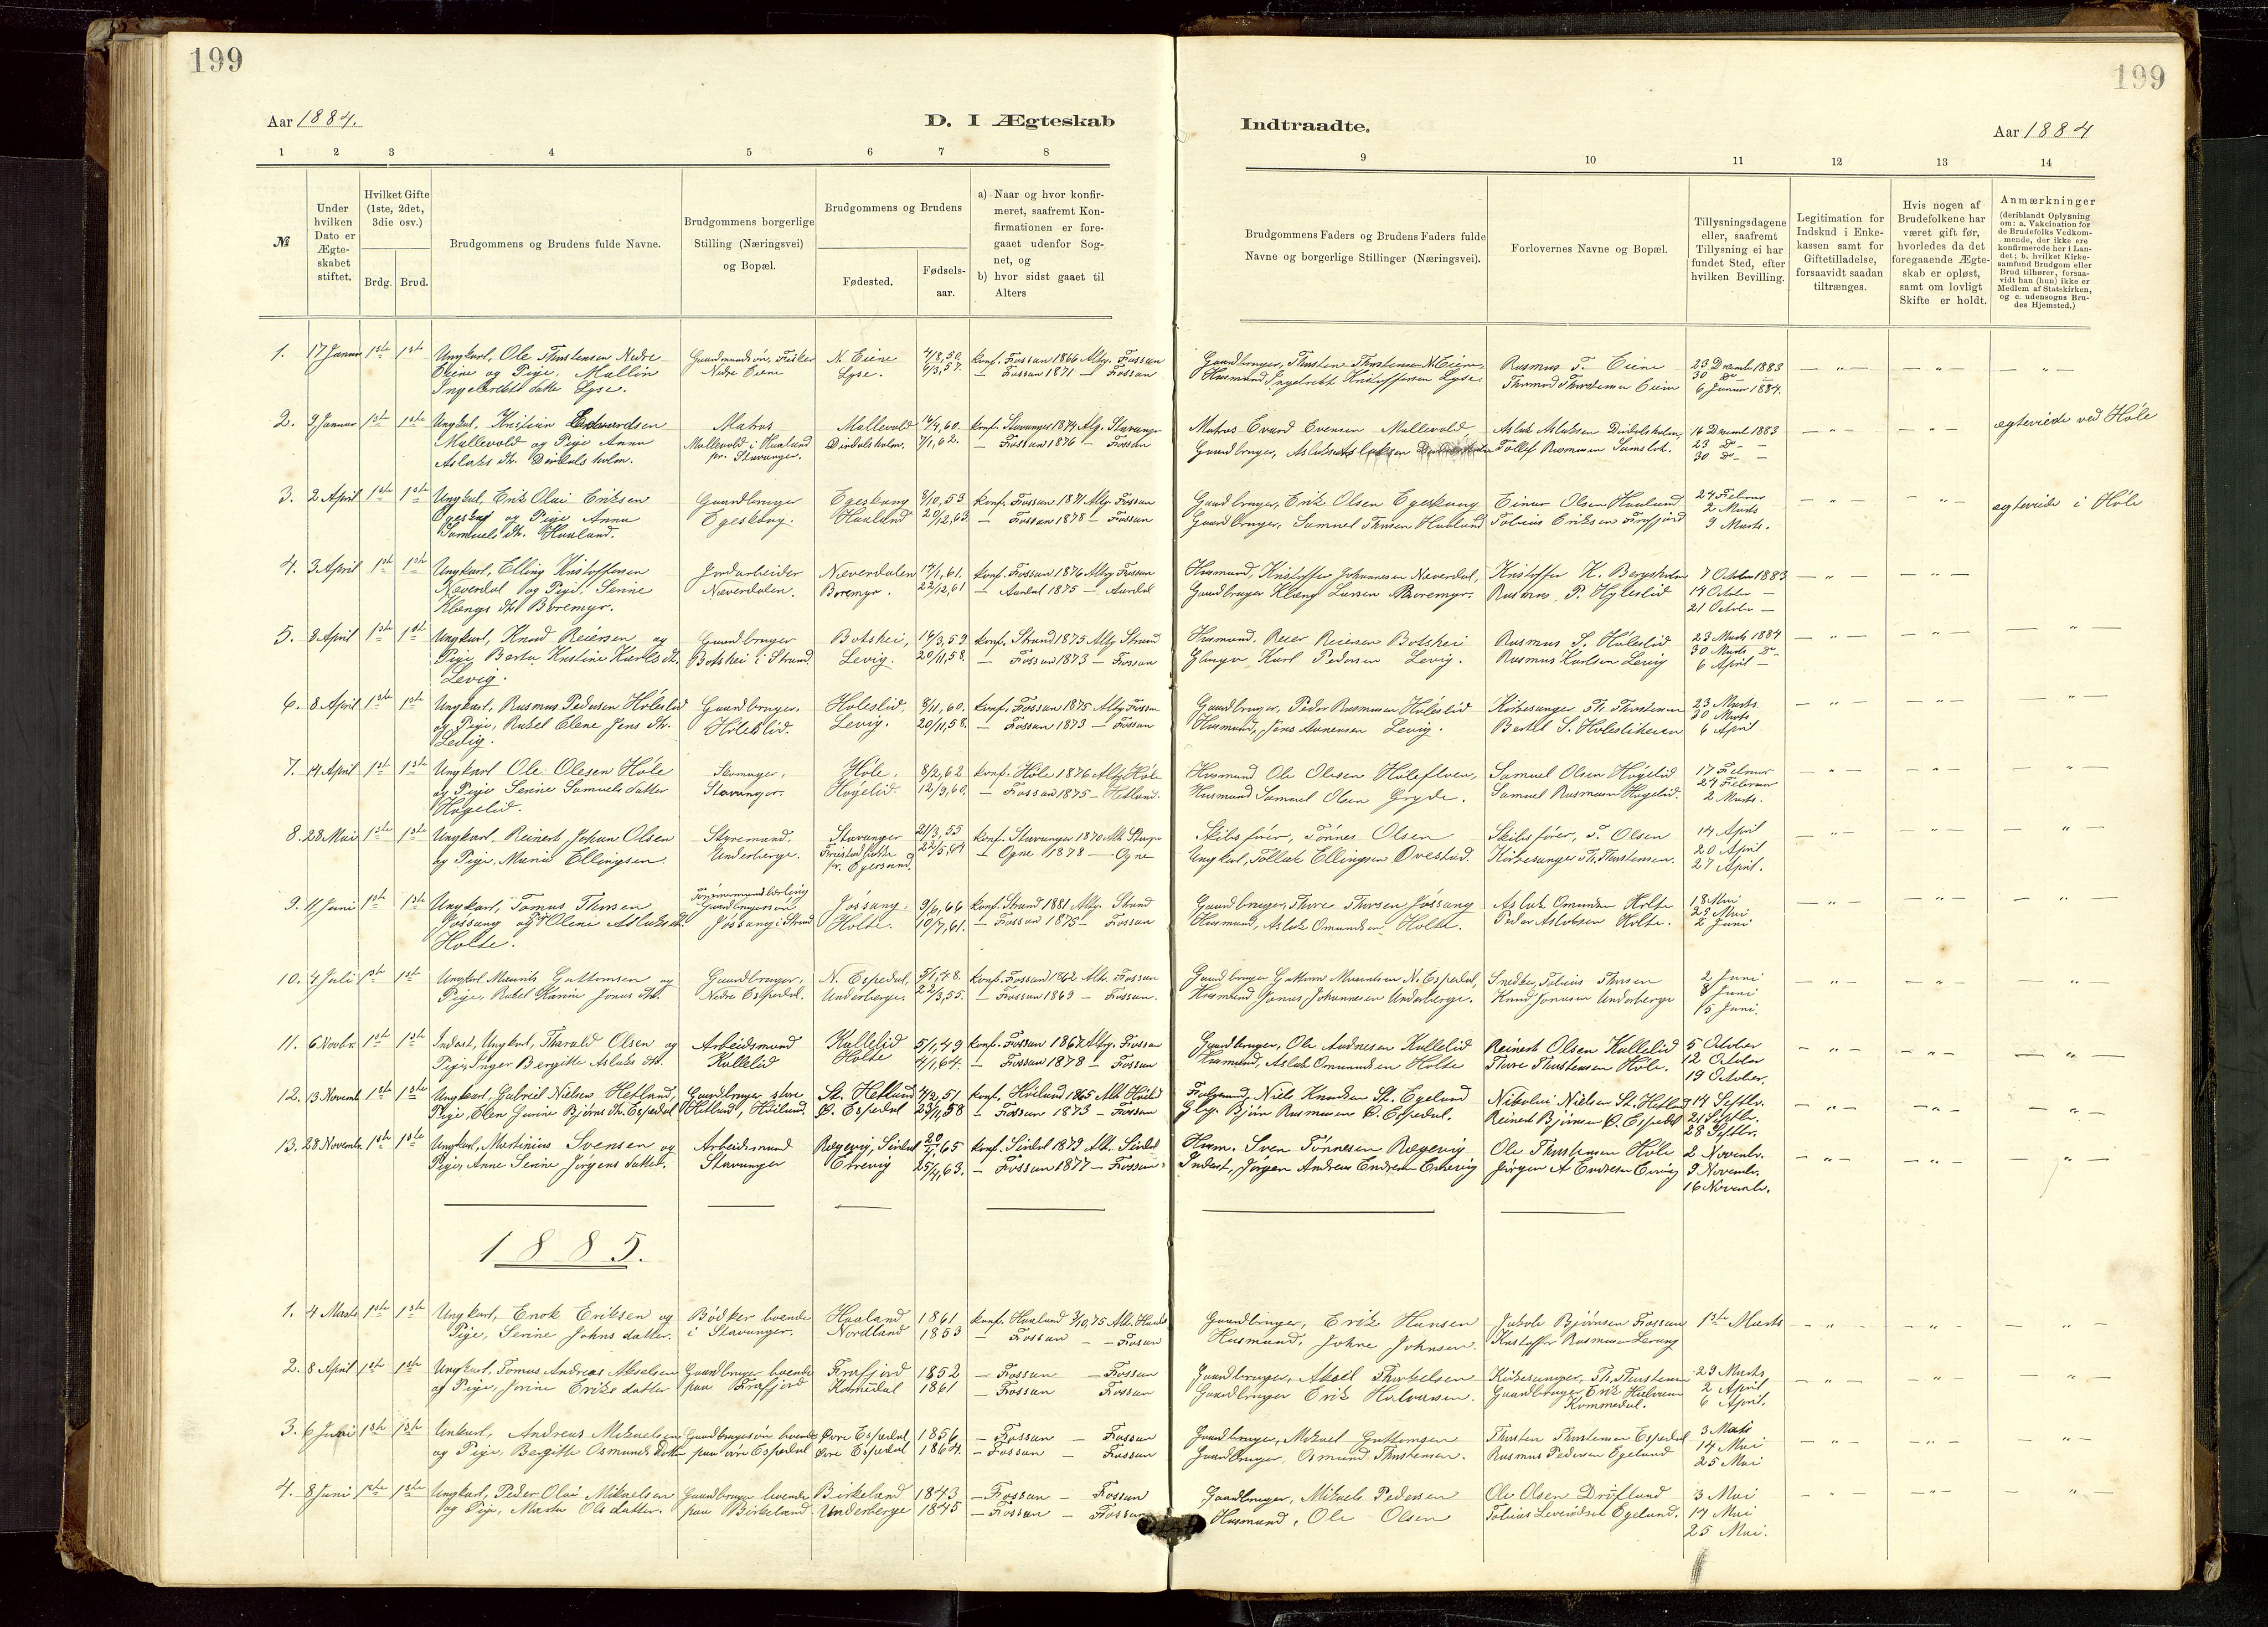 199
199
Aar 1884.
D. I Ægteskab
Indtraadte.
Aar 1884
1 2 3 4 5 6 7 8 9 10 11 12 13 14
№
Under hvilken Dato er Ægteskabet stiftet.
Hvilket Gifte (1ste, 2det, 3die osv.)
Brdg. Brud.
Brudgommens og Brudens fulde Navne.
Brudgommens borgerlige Stilling (Næringsvei) og Bopæl.
Brudgommens og Brudens
Fødested.
Fødselsaar.
a) Naar og hvor konfirmeret, saafremt Konfirmationen er foregaaet udenfor Sognet, og
b) hvor sidst gaaet til Alters
Brudgommens Faders og Brudens Faders fulde Navne og borgerlige Stillinger (Næringsvei).
Forlovernes Navne og Bopæl.
Tillysningsdagene eller, saafremt Tillysning ei har fundet Sted, efter hvilken Bevilling.
Legitimation for Indskud i Enkekassen samt for Giftetilladelse, forsaavidt saadan tiltrænges.
Hvis nogen af Brudefolkene har været gift før, hvorledes da det foregaaende Ægteskab er opløst, samt om lovligt Skifte er holdt.
Anmærkninger
(deriblandt Oplysning om: a. Vakcination for de Brudefolks Vedkommende, der ikke ere konfirmerede her i Landet; b. hvilket Kirkesamfund Brudgom eller Brud tilhører, forsaavidt han (hun) ikke er Medlem af Statskirken, og c. udensogns Brudes Hjemsted.)
1. 17 Januar 1ste 1ste Ungkarl, Ole Thorstensen Nedre N. Eiene 4/8, 50. konf. Fossan 1866 Altg. Fossan Gaardbruger, Thorsten Thorstensen N. Eiene, Rasmus T. Eiene 23 Decembr 1883
Eiene og Pige, Mallin Nedre Eiene Lyse. — Fossan 1871 — Fossan Husmand Ingebret Kristoffersen Lyse. 30 Do
Ingebretsdatter Lyse. 6 Januar 1884.
2. 9 Januar 1ste 1ste Ungkarl, Kristian Edvardsen Matros Mallevold 16/4, 60. konf. Stavanger 1874 Altg. Stavanger Matros Evard Evensen Mallevold Aslak Aslaksen Dirdalsholm, 16 Decembr 1883 ægteviede ved Høle
Mallevold og Pige Anna Mallevold i Haaland Dirdalsholm. 7/1, 62. — Fossan 1876 — Fossan Gaardbruger, Aslak Aslaksen Tollef Rasmussen 23 Do —
Aslaks Dt. Dirdalsholm. pr. Stavanger. 30 Do —
3. 2 April 1ste 1ste Ungkarl, Erik Olai Eriksen Gaardbruger Egeskaag 8/10, 53 konf. Fossan 1871 Altg. Fossan Gaardbruger, Erik Olsen Egeskaag Einar Olsen Haaland 24 Februar ægteviede i Høle
og Pige Anna Egeskaag. Haaland 20/12, 63. — Fossan 1878 — Fossan Gaardbruger, Samuel Thorsen Haaland Tobias Eriksen Frafjord 2 Marts
Samuels Dt. Haaland. 9 Marts.
4. 3 April 1ste 1ste Ungkarl, Elling Kristoffersen Jordarbeider Næverdalen 17/1, 61. konf. Fossan 1876 Altg Fossan Husmand, Kristoffer Johannesen Næverdal, Kristoffer K. Bergeholm 7 October 1883
Næverdal og Pige, Serine Næverdalen. Boremyr. 22/12, 61 — Aardal 1875 — Aardal Gaardbruger Klæng Larsen Boremyr. Rasmus P. Hyleslid 14 October —
Klængs Dt. Boremyr. 21 October —
5. 8 April 1ste 1ste Ungkarl, Knud Reiersen og Gaardbruger Botshei, 14/3, 59 konf. Strand 1875 Altg Strand Husmand, Reier Reiersen Botshei Rasmus S. Høleslid 23 Marts 1884
Pige Berta Kristine Karls Dt. Botshei i Strand. Levig. 20/11, 58. — Fossan 1873 — Fossan Karl Pedersen Levig. Rasmus Karlsen Levig 30 Marts Do
Levig. 6 April —
6. 8 April 1ste 1ste Ungkarl, Rasmus Pedersen Høleslid Gaardbruger. Holeslid, 8/11, 60. konf. Fossan 1875 Altg Fossan Gaardbruger, Peder Rasmussen Høleslid Kirkesanger Th. Thorstensen 23 Marts
og Pige, Rakel Elene Jens Dt. Høleslid. Levig. 20/11, 58. — Fossan 1873 — Fossan Husmand, Jens Levig. Bertel S. Holesliheien 30 Marts
Levig. 6 April
7. 14 April 1ste 1ste Ungkarl Ole Olesen Høle Skomager, Høle. 8/2, 62 konf. Høle 1876 Altg Høle Husmand Ole Olesen Samuel Olsen Høgelid 17 Februar
og Pige Serine Samuelsdatter Stavanger. Høgelid. 12/9, 60. — Fossan 1875 — Hetland. Husmand Samuel Olsen Gryde. Samuel Rasmussen Høgelid. 24 Februar
Høgelid. 2 Marts.
8. 28 Mai 1ste 1ste Ungkarl, Reinert Johan Olsen Styremand, Stavanger 21/3, 55 konf. Stavanger 1870 Skibsfører, Tønnes Olsen Skibsfører, T. Olsen 14 April
og Pige, Maria Ellingsen. Underberge. 22/5, 64 — Ogne 1878 — Ogne Ungkarl, Tollak Ellingsen Ovestad. Kirkesanger Th. Thorstensen. 20 April
pr. Egersund. 27 April.
9. 11 Juni 1ste 1ste Ungkarl, Tomas Thorsen Tømmermandslærling Jøssang. 9/6, 66 konf. Strand 1881 Altg. Strand Gaardbruger, Thore Thorsen Jøssang Aslak Omundsen Holte 18 Mai
Jøssang og Olene Aslaks Dt. Jøssang i Strand Holte. 10/7, 61. — Fossan 1875 — Fossan Husmand, Aslak Omundsen Holte. Peder Aslaksen Holte. 23 Mai
Holte. 2 Juni
10. 4 Juli 1ste 1ste Ungkarl Maurits Guttormsen og Gaardbruger, N. Espedal, 5/1, 48. konf. Fossan 1862 Altr. Fossan Gaardbruger Guttorm N. Espedal, Snedker, Tobias Thorsen 2 Juni
Pige, Rakel Karine Jonas Dt. Nedre Espedal. Underberge. 22/3, 55. — Fossan 1869 — Fossan. Husmand Jonas Johannesen Underberge. Knud Jonasen Underberge 8 Juni
15 Juni.
11. 6 Novbr. 1ste 1ste Inderst, Ungkarl, Tharald Olsen og Arbeidsmand Kallelid 5/1, 49 konf. Fossan 1864 Altg. Fossan Gaardbruger, Ole Andresen Kallelid Reinert Olsen Kallelid 5 October
Pige, Inger Bergitte Aslaks Dt. Kallelid Holte 4/1, 64. — Fossan 1878 — Fossan Husmand, Aslak Omundsen Holte Thore Thorstensen Høle. 12 October
19 October.
12. 13 Novemb 1ste 1ste Ungkarl, Gabriel Nielsen Hetland, Gaardbruger store St. Hetland 4/2, 51 konf. Høiland 1865 Alt. Høiland Niels Knudsen St. Egeland Nikolai Nielsen St. Hetland 14 Septbr.
Pige, Elen Gurine Bjørns Dt. Espedal Hetland, Høiland. Ø. Espedal 23/11, 58 — Fossan 1873 — Fossan Bjørn Rasmussen Ø. Espedal. Reinert Bjørnsen Ø. Espedal 21 Septbr.
28 Septbr.
13. 28 Novembr. 1ste 1ste Ungkarl, Martinius Svensen og Arbeidsmand Rægevig, 20/7, 65 konf. 1879 Husm. Sven Tønnesen Rægevig Ole Thorstensen Høle 2 Novembr.
Pige, Anne Serine Jørgens datter. Stavanger Eirevig 25/4, 63. — Fossan 1877 — Fossan. Inderst, Jørgen Andreas Endresen Jørgen A Endresen 9 Novembr.
16 Novembr.
1885.
1. 4 Marts 1ste 1ste Ungkarl, Enok Eriksen og Bødker boende Haaland 1861 konf. Haaland 3/10, 75 Gaardbruger, Erik Hansen Jakob Bjørnsen Fossan 1ste Marts
Pige, Serine Johns datter. i Stavanger. Nordland 1853 — Fossan — Fossan Husmand, Johne Johnsen. Kristoffer Rasmussen Levaag
2. 8 April 1ste 1ste Ungkarl, Tomas Andreas Akselsen Gaardbruger boende Frafjord 1852 — Fossan — Fossan Gaardbruger, Aksel Thorkelsen Kirkesanger, Th. Thorstensen 29 Marts
og Pige, Jorine Eriks datter paa Frafjord Kommedal 1861 — Fossan Fossan Gaardbruger Erik Halvorsen. Gaardbruger Erik Halvorsen 2 April
Kommedal. 6 April.
3. 6 Juni 1ste 1ste Unkarl, Andreas Mikaelsen Gaardbrugersøn boende Øvre Espedal 1856 — Fossan — Fossan Gaardbruger, Mikael Guttormsen Thorsten Thorstensen Espedal 3 Marts
og Pige, Begitte Osmunds datter paa øvre Espedal Øvre Espedal 1864. — Fossan — Fossan Gaardbruger, Osmund Thorstensen. Rasmus Pedersen Egeland 14 Mai
25 Mai
4. 8 Juni 1ste 1ste Ungkarl, Peder Olai Mikaelsen Gaardbruger boende Birkeland 1843 — Fossan — Fossan Gaardbruger, Mikael Pedersen Ole Olsen Drøfland 3 Mai
og Pige, Marta Ols datter. paa Birkeland. Underberge 1845 — Fossan — Fossan Husmand, Ole Olsen Tobias Egeland. 14 Mai
25 Mai.